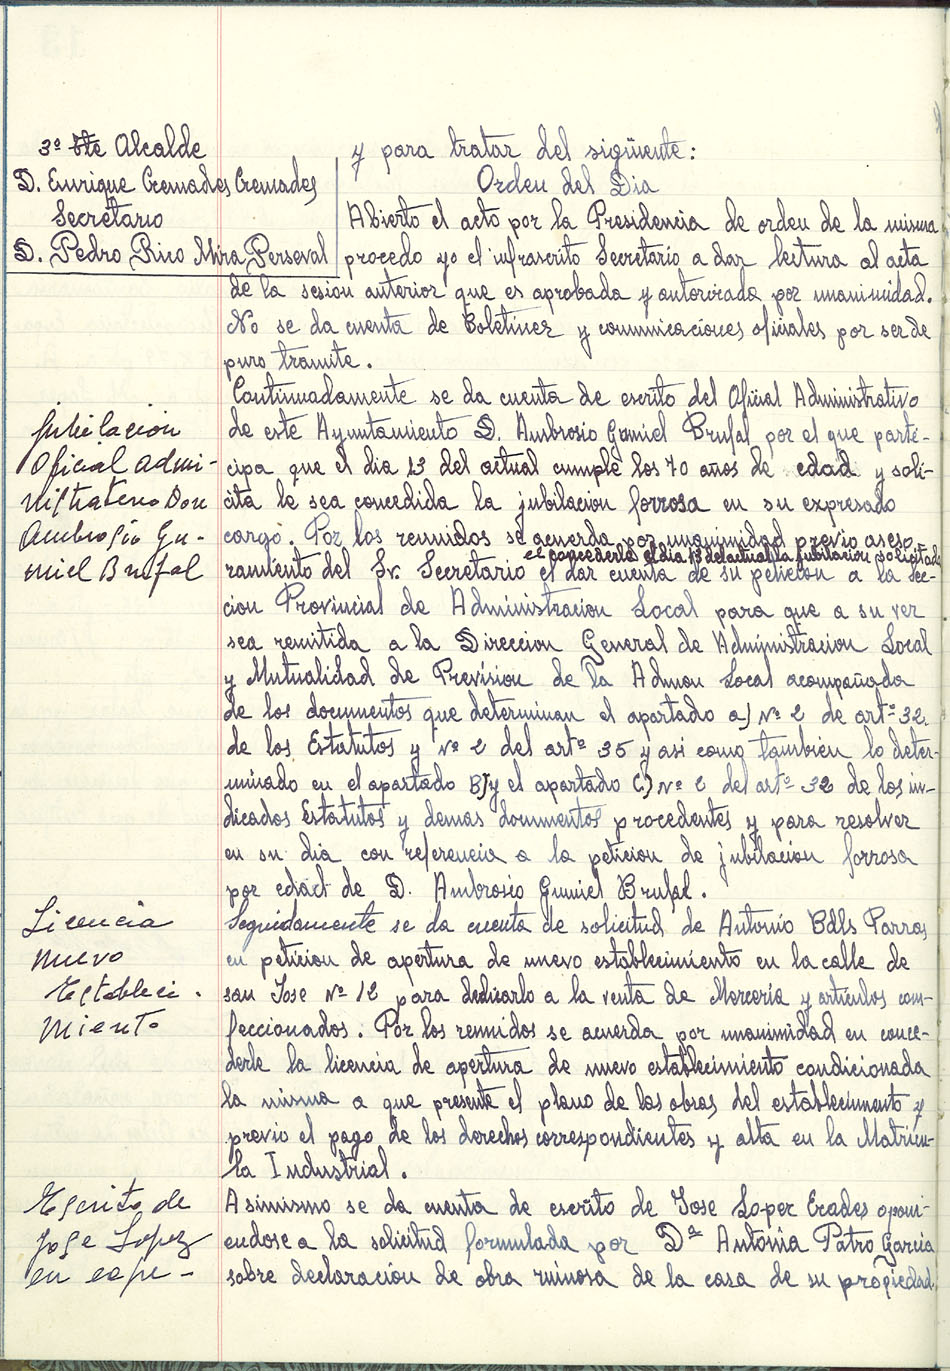 3º Tte Alcalde
D. Enrique Cremades Cremades
Secretario
D. Pedro Rico Mira Perseval
y para tratar del sigüiente:
Orden del Dia
Abierto el acto por la Presidencia de orden de la misma
procedo yo el infrascrito Secretario a dar lectura al acta
de la sesion anterior que es aprobada y autorizada por unanimidad.
No se da cuenta de Boletines y comunicaciones oficiales por ser de
puro tramite.
Jubilacion
Oficial admi-
nistrativo Don
Ambrosio Gu-
miel Brufal
Continuadamente se da cuenta de escrito del Oficial Administrativo
de este Ayuntamiento D. Ambrosio Gumiel Brufal por el que parti-
cipa que el dia 13 del actual cumple los 70 años de edad y soli-
cita le sea concedida la jubilacion forrosa en su expresado
cargo. Por los reunidos se acuerda por unanimidad previo aseso-
el concederle el dia 13 del actual la jubilacion solicitada
ramiento del Sr. Secretario el dar cuenta de su peticion a la Sec-
cion Provincial de Administracion Local para que a su vez
sea remitida a la Direccion General de Administracion Local
y Mutualidad de Prevision de la Admon Local acompañada
de los documentos que determinan el apartado a) Nº 2 de artº 32.
de los Estatutos y Nº 2 del artº 35 y asi como tambien lo deter-
minado en el apartado B) y el apartado C) Nº 2 del artº 32 de los in-
dicados Estatutos y demas documentos procedentes y para resolver
en su dia con referencia a la peticion de jubilacion forrosa
por edad de D. Ambrosio Gumiel Brufal.
Licencia
nuevo
Estableci-
miento
Seguidamente se da cuenta de solicitud de Antonio Bdlls Parras
en peticion de apertura de nuevo establecimiento en la calle de
san Jose Nº 12 para dedicarlo a la venta de Merceria y articulos con-
feccionados. Por los reunidos se acuerda por unanimidad en conce-
derle la licencia de apertura de nuevo establecimiento condicionada
la misma a que presente el plano de las obras del establecimiento y
previo el pago de los derechos correspondientes y alta en la Matricu-
la Industrial.
Escrito de
Jose Lopez
en expe-
Asimismo se da cuenta de escrito de Jose Loper Erades oponi-
endose a la solicitud formulada por Dª Antonia Patro Garcia
sobre declaracion de obra ruinosa de la casa de su propiedad